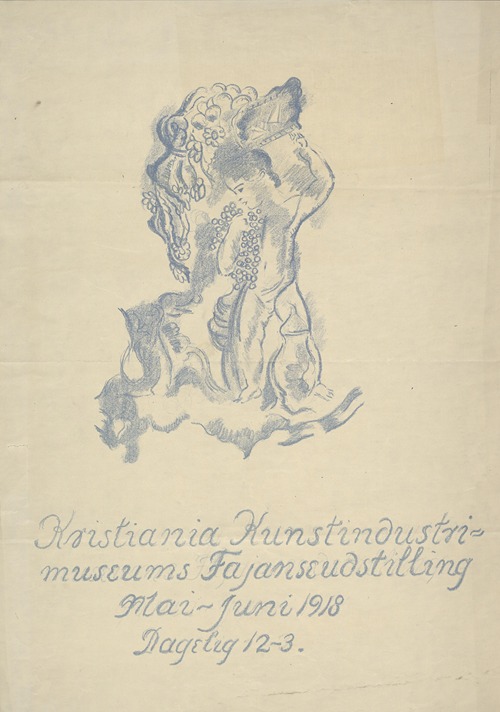 Kristiania Kunstindustri=
museums Fajanseudstilling
Mai - Juni 1918
Dagelig 12-3.